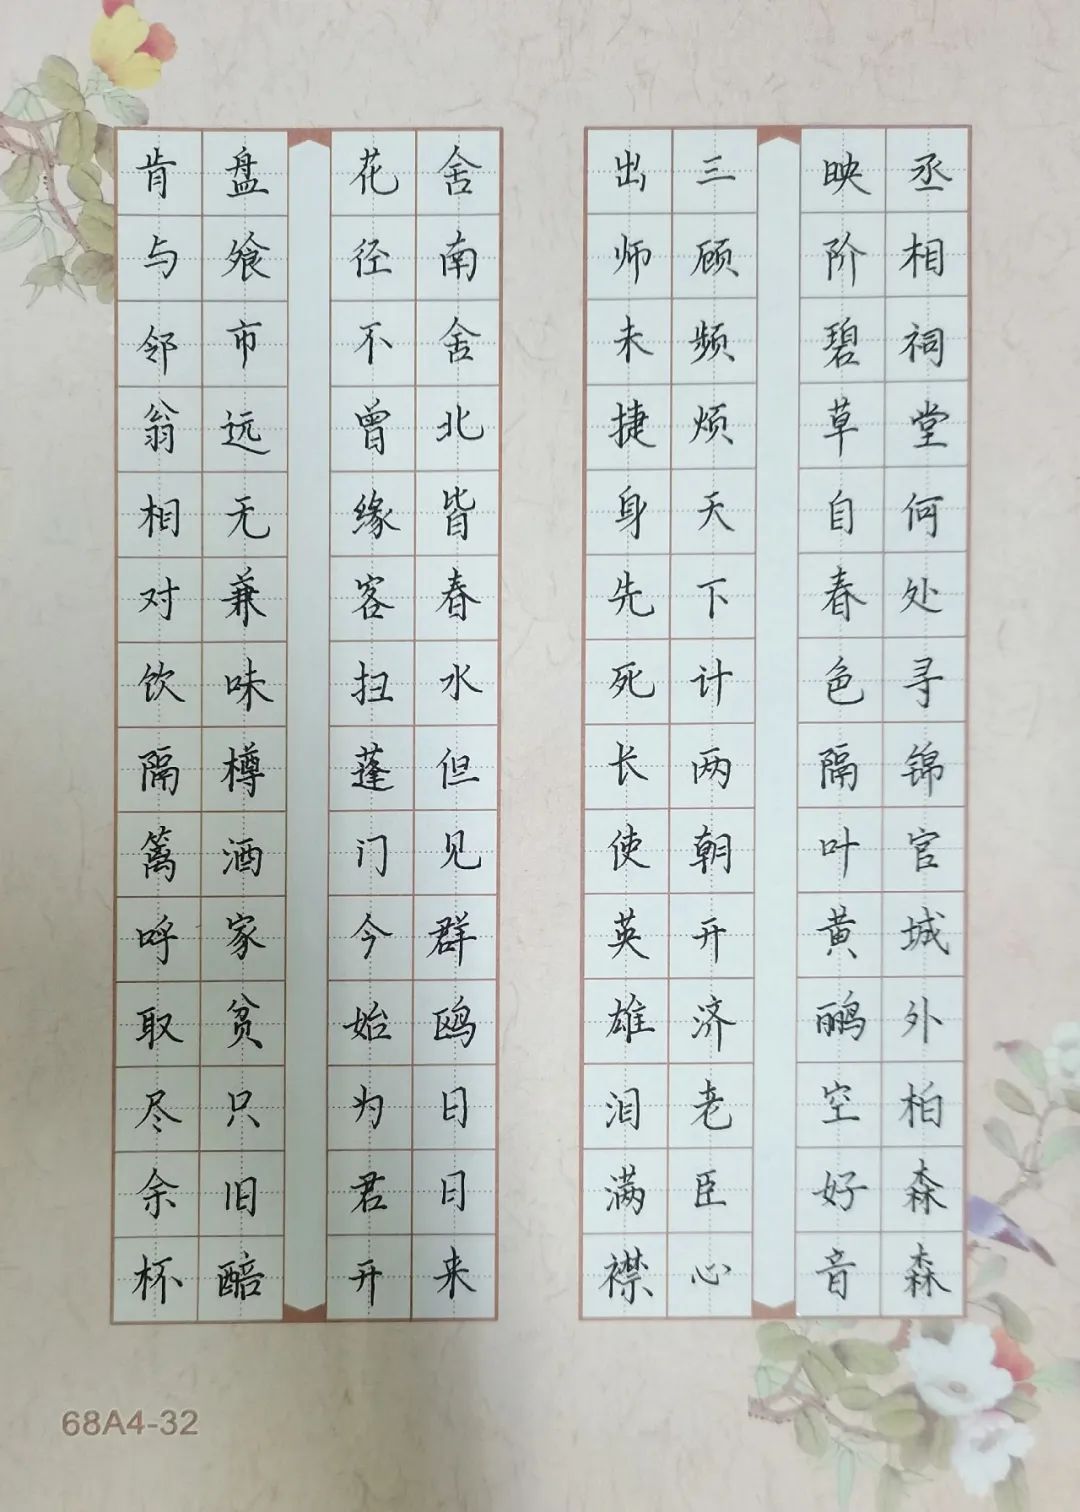 丞相祠堂何处寻锦官城外柏森森
映阶碧草自春色隔叶黄鹂空好音
三顾频烦天下计两朝开济老臣心
出师未捷身先死长使英雄泪满襟
舍南舍北皆春水但见群鸥日日来
花径不曾缘客扫蓬门今始为君开
盘飧市远无兼味樽酒家贫只旧醅
肯与邻翁相对饮隔篱呼取尽余杯
68A4-32